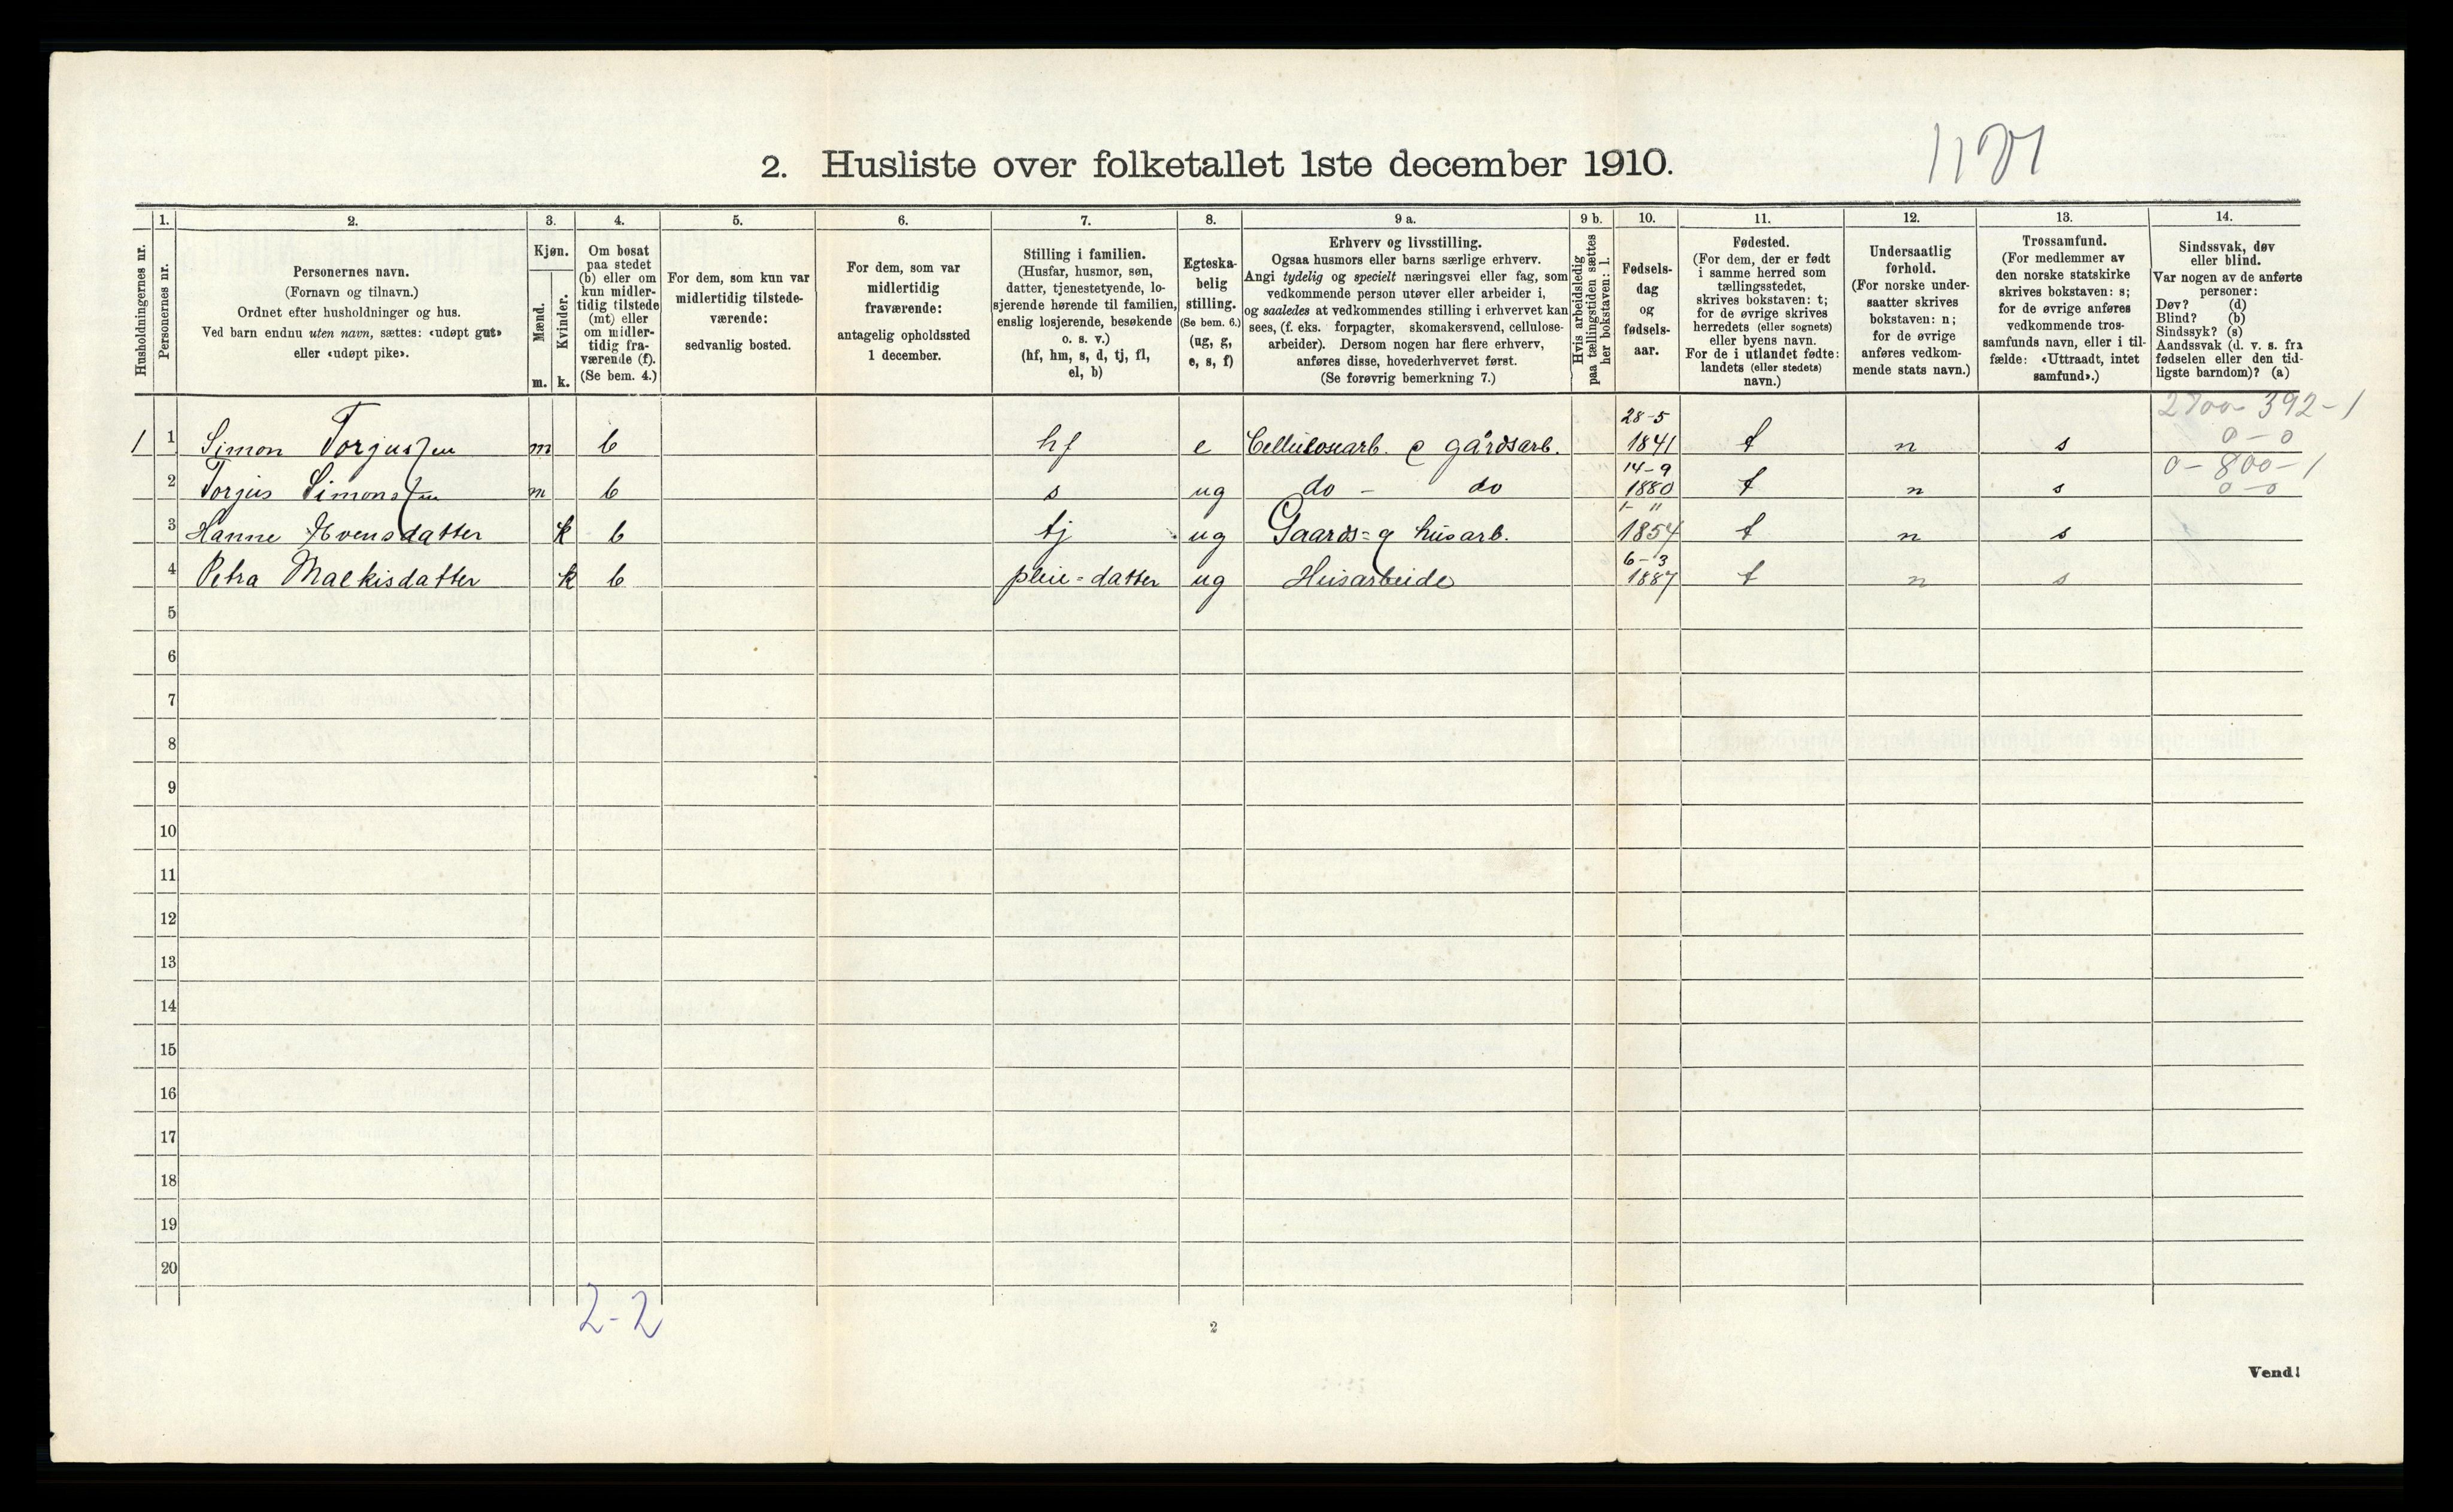 2. Husliste over folketallet 1ste december 1910.
Husholdningernes nr.
1.
Personernes nr.
2.
Personernes navn.
(Fornavn og tilnavn.)
Ordnet efter husholdninger og hus.
Ved barn endnu uten navn, sættes: «udøpt gut»
eller «udøpt pike».
3.
Kjøn.
Mænd.
Kvinder.
m. k.
4.
Om bosat
paa stedet
(b) eller om
kun midler-
tidig tilstede
(mt) eller
om midler-
tidig fra-
værende (f).
(Se bem. 4.)
5.
For dem, som kun var
midlertidig tilstede-
værende:
sedvanlig bosted.
6.
For dem, som var
midlertidig
fraværende:
antagelig opholdssted
1 december.
7.
Stilling i familien.
(Husfar, husmor, søn,
datter, tjenestetyende, lo-
sjerende hørende til familien,
enslig losjerende, besøkende
o. s. v.)
(hf, hm, s, d, tj, fl,
el, b)
8.
Egteska-
belig
stilling.
(Se bem. 6.)
(ug, g,
e, s, f)
9 a.
Erhverv og livsstilling.
Ogsaa husmors eller barns særlige erhverv.
Angi tydelig og specielt næringsvei eller fag, som
vedkommende person utøver eller arbeider i,
og saaledes at vedkommendes stilling i erhvervet kan
sees, (f. eks. forpagter, skomakersvend, cellulose-
arbeider). Dersom nogen har flere erhverv,
anføres disse, hovederhvervet først.
(Se forøvrig bemerkning 7.)
9 b.
Hvis arbeidsledig
paa tællingstiden sættes
her bokstaven: l.
10.
Fødsels-
dag
og
fødsels-
aar.
11.
Fødested.
(For dem, der er født
i samme herred som
tællingsstedet,
skrives bokstaven: t;
for de øvrige skrives
herredets (eller sognets)
eller byens navn.
For de i utlandet fødte:
landets (eller stedets)
navn.)
12.
Undersaatlig
forhold.
(For norske under-
saatter skrives
bokstaven: n;
for de øvrige
anføres vedkom-
mende stats navn.)
13.
Trossamfund.
(For medlemmer av
den norske statskirke
skrives bokstaven: s;
for de øvrige anføres
vedkommende tros-
samfunds navn, eller i til-
fælde: «Uttraadt, intet
samfund».)
14.
Sindssvak, døv
eller blind.
Var nogen av de anførte
personer:
Døv? (d)
Blind? (b)
Sindssyk? (s)
Aandssvak (d. v. s. fra
fødselen eller den tid-
ligste barndom)? (a)
392-1
1 1 Simon Torjussen m b hf e Cellulosearb. & gårdsarb. 28-5 1841 t n s 0-0
2 Torjus Simonsen m b s ug do - do 14-9 1880 t n s 0-800-1 0-0
3 Hanne Evensdatter k b tj ug Gaards= & husarb. 1854 t n s
4 Petra Malkisdatter k b pleie=datter ug Husarbeide 6-3 1887 t n s
5
6
7
8
9
10
11
12
13
14
15
16
17
18
19
20
2-2
2
Vend!